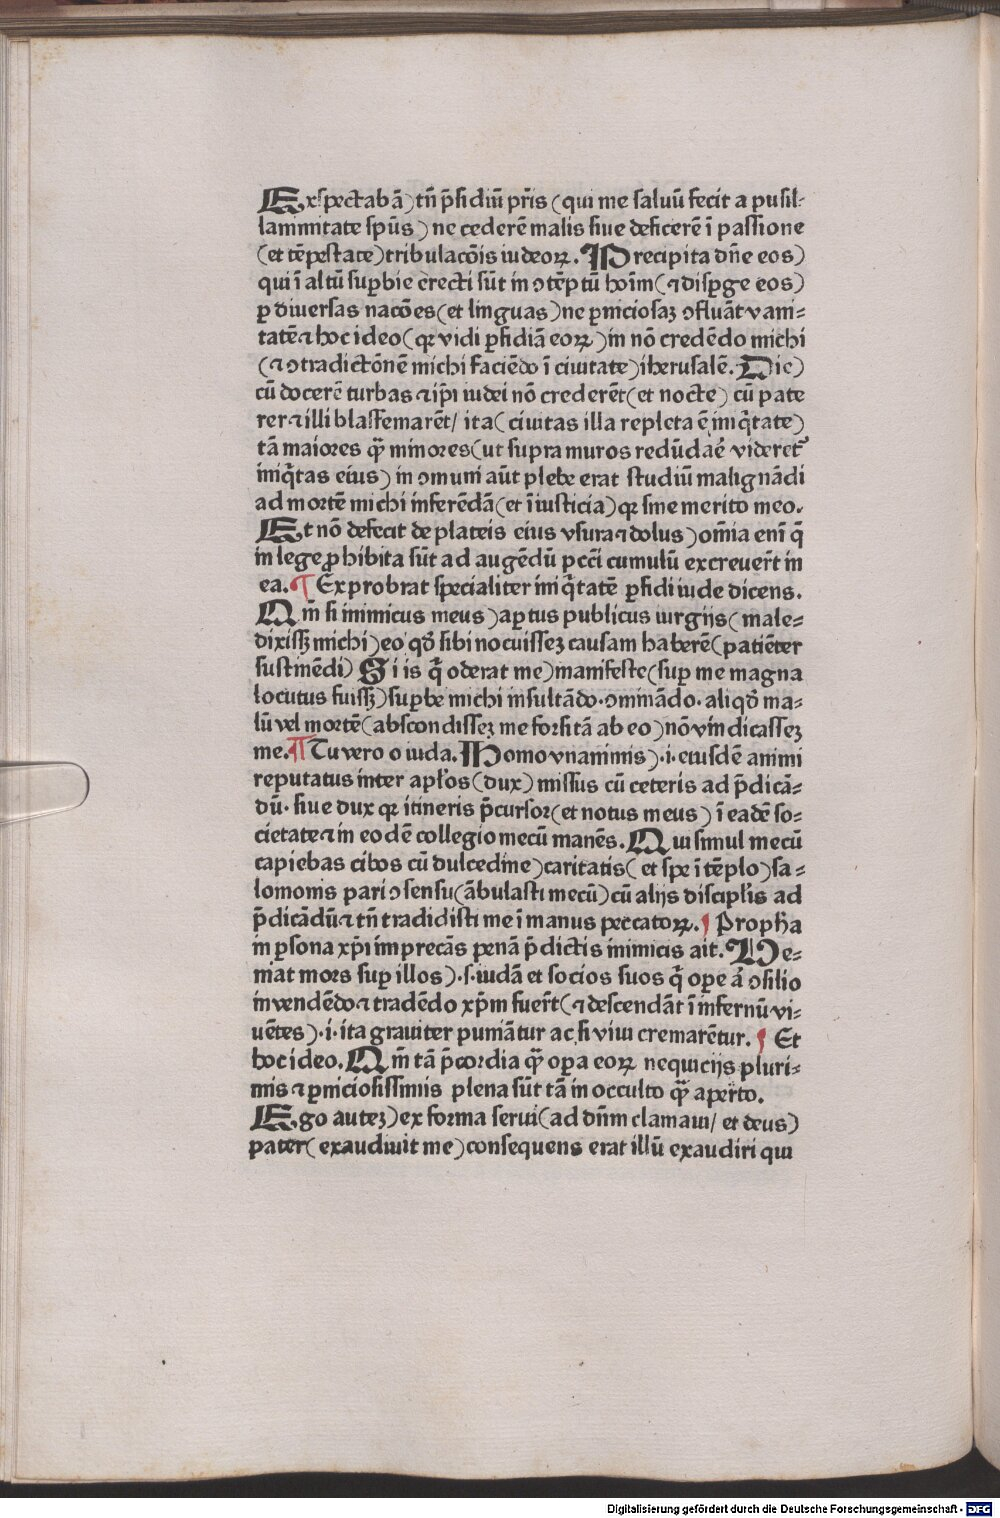 Exſpectabā) tn̄ p̄ſidiū pr̄is (qui me ſaluū fecit a puſil⸗
lanimitate ſpūs) ne cederē malis ſiue deficerē ī paſſione
(et tēpeſtate) tribulacōis iudeoꝝ. Precipita dn̄e eos)
qui ī altū ſuꝑbie erecti ſūt in ↄtēptū hoīm (⁊ diſꝑge eos)
ꝑ diuerſas nacōes (et linguas) ne ꝑnicioſaꝫ ↄfluāt vani⸗
tatē ⁊ hoc ideo (qꝛ vidi ꝑfidiā eoꝝ) in nō credēdo michi
(⁊ ↄtradictōnē michi faciēdo ī ciuitate) iheruſalē. Die)
cū docerē turbas ⁊ ip̄i iudei nō crederēt (et nocte) cū pate
rer ⁊ illi blaſfemarēt / ita (ciuitas illa repleta ē iniq̄tate)
tā maiores qꝫ̄ minores (ut ſupra muros redūdaē videret᷑
iniq̄tas eius) in ↄmuni aūt plebe erat ſtudiū malignādi
ad mortē michi inferēdā (et īiuſticia) qꝛ ſine merito meo.
Et nō defecit de plateis eius vſura ⁊ dolus) om̄ia eni q̄
in lege ꝓhibita ſūt ad augēdū pccī cumulū excreuerūt in
ea. ¶ Exprobrat ſpecialiter iniq̄tatē ꝑfidi iude dicens.
Qm̄ ſi inimicus meus) aꝑtus publicus iurgijs (male⸗
dixiſſꝫ michi) eo qd̄ ſibi nocuiſſeꝫ cauſam haberē (patiēter
ſuſtinēdi) Si is q̄ oderat me) manifeſte (ſuꝑ me magna
locutus fuiſſꝫ) ſuꝑbe michi inſultādo · ↄminādo · aliqd̄ ma⸗
lū vel mortē (abſcondiſſeꝫ me forſitā ab eo) nō vindicaſſeꝫ
me. ¶ Tu vero o iuda. Homo vnanimis) .i. eiuſdē animi
reputatus inter apl̄os (dux) miſſus cū ceteris ad p̄dicā⸗
dū · ſiue dux qꝛ itineris p̄curſor (et notus meus) ī eadē ſo⸗
cietate ⁊ in eodē collegio mecū manēs. Qui ſimul mecū
capiebas cibos cū dulcedine) caritatis (et ſpe ī tēplo) ſa⸗
lomonis pari ↄſenſu (ābulaſti mecū) cū alijs diſcipl̄is ad
p̄dicādū ⁊ tn̄ tradidiſti me ī manus peccatoꝝ. ¶ Prop̄ha
in ꝑſona xp̄i imprecās penā p̄dictis inimicis ait. Ue⸗
niat mors ſuꝑ illos) .ſ. iudā et ſocios ſuos q̄ ope ā ↄſilio
in vendēdo ⁊ tradēdo xp̄m fuer̄t (⁊ deſcendāt ī infernū vi⸗
uētes) .i. ita grauiter puniātur ac ſi viui cremarētur. ¶ Et
hoc ideo. Qm̄ tā p̄cordia qꝫ̄ oꝑa eoꝝ nequicijs pluri⸗
mis ⁊ ꝑnicioſiſſimis plena ſūt tā in occulto qꝫ̄ aꝑto.
Ego auteꝫ) ex forma ſerui (ad dn̄m clamaui / et deus)
pater (exaudiuit me) conſequens erat illū exaudiri qui
Digitalisierung gefördert durch die Deutsche Forschungsgemeinschaft - DFG